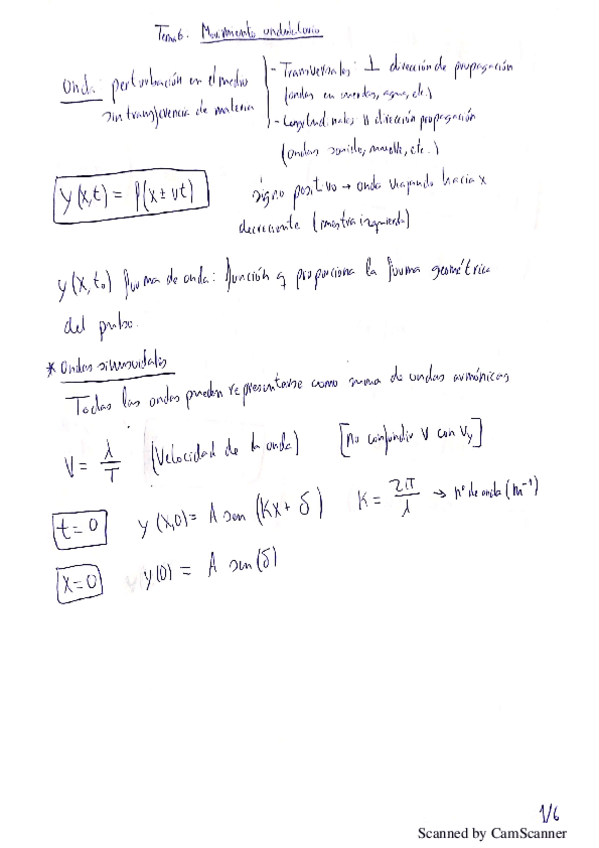 Tema 6. Movimiento ondulatorio
Onda: perturbación en el medio
sin transferencia de materia
- Transversales: ⊥ dirección de propagación
(ondas en cuerdas, agua, etc.)
- Longitudinales: || dirección propagación
(ondas sonido, muelle, etc.)
y(x,t) = f(x ± vt)
signo positivo → onda viajando hacia x
decreciente (nuestra izquierda)
y(x,t₀) forma de onda: función q proporciona la forma geométrica
del pulso.
* Ondas sinusoidales
Todas las ondas pueden representarse como suma de ondas armónicas
V = λ/T (Velocidad de la onda) [no confundir V con Vy]
t=0 y(x,0) = A sen (Kx + δ) K = 2π/λ → nº de onda (m⁻¹)
x=0 y(0) = A sen(δ)
1/6
Scanned by CamScanner